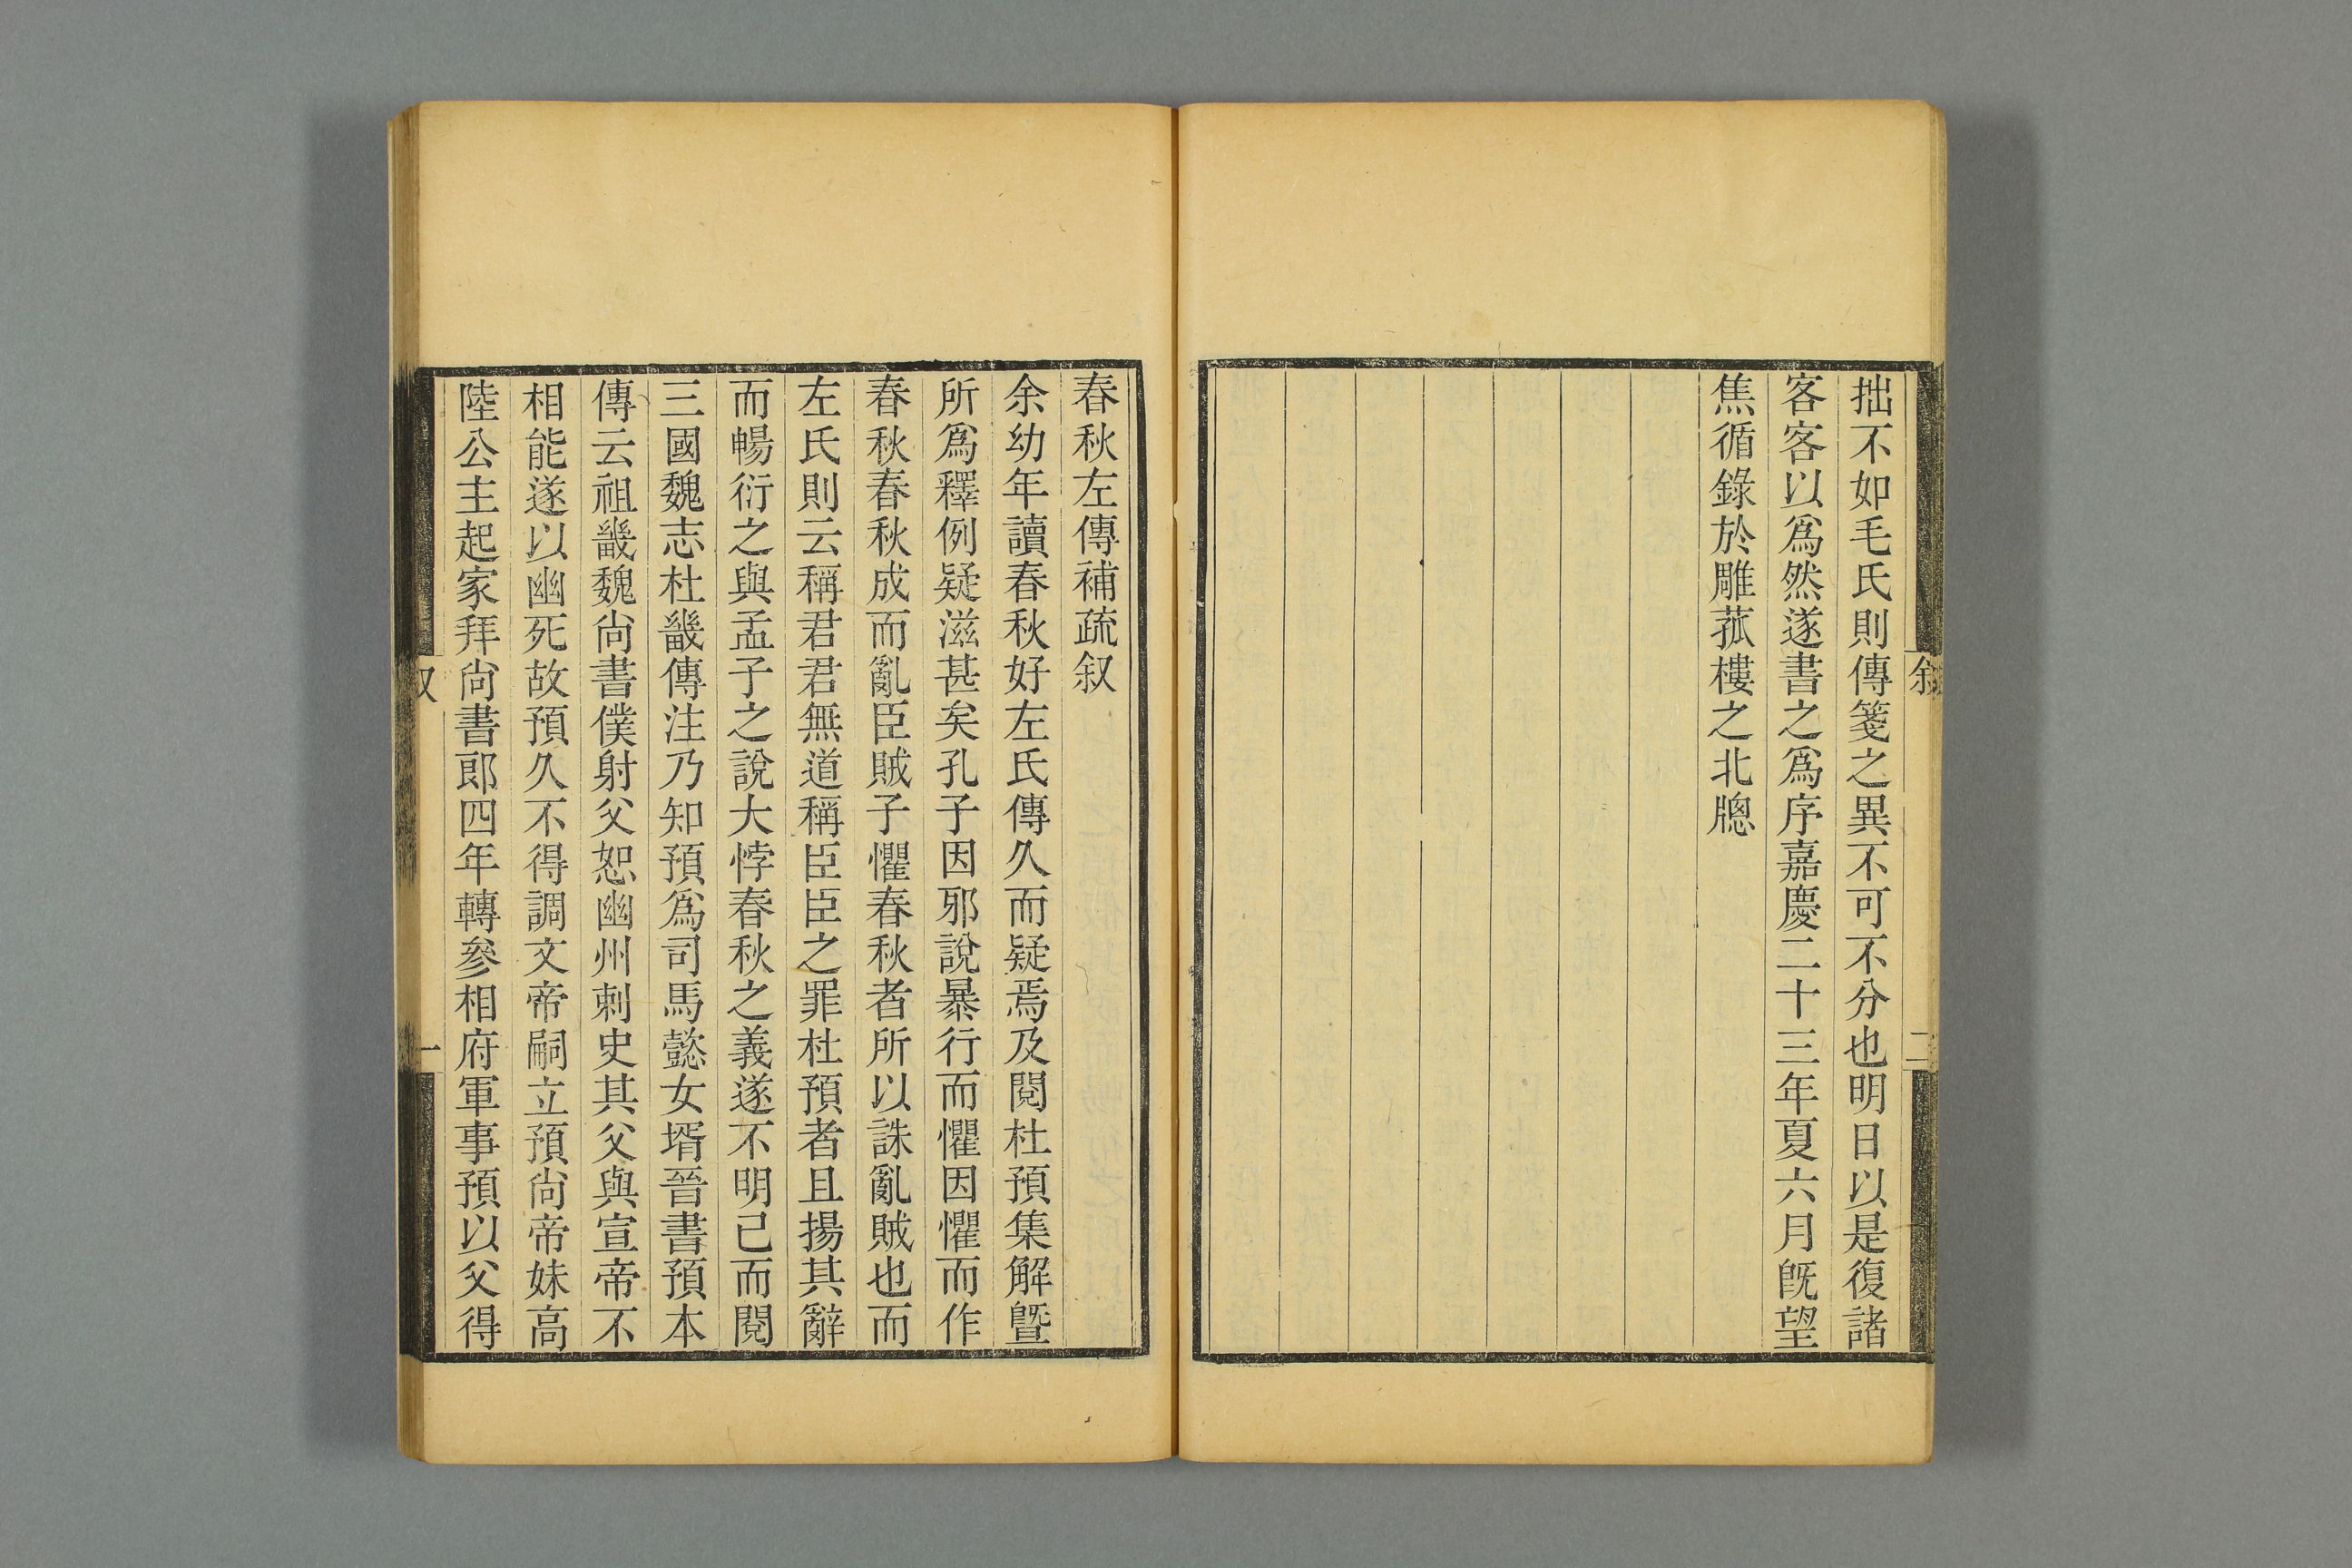 叙
二
拙不如毛氏則傳箋之異不可不分也明日以是復諸
客客以爲然遂書之爲序嘉慶二十三年夏六月旣望
焦循錄於雕菰樓之北牕
春秋左傳補疏叙
余幼年讀春秋好左氏傳久而疑焉及閱杜預集解曁
所爲釋例疑滋甚矣孔子因邪說暴行而懼因懼而作
春秋春秋成而亂臣賊子懼春秋者所以誅亂賊也而
左氏則云稱君君無道稱臣臣之罪杜預者且揚其辭
而暢衍之與孟子之說大悖春秋之義遂不明已而閱
三國魏志杜畿傳注乃知預爲司馬懿女壻晉書預本
傳云祖畿魏尙書僕射父恕幽州刺史其父與宣帝不
相能遂以幽死故預久不得調文帝嗣立預尙帝妹高
陸公主起家拜尙書郎四年轉參相府軍事預以父得
叙
一